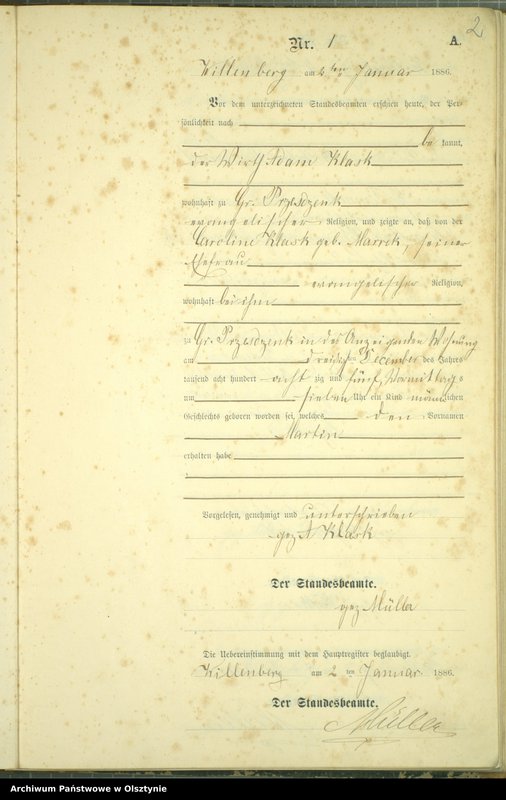 2
Nr. 1 A.
Willenberg am 2ten Januar 1886.
Vor dem unterzeichneten Standesbeamten erschien heute, der Per-
sönlichkeit nach
be kannt,
der Wirth Adam Klask
wohnhaft zu Gr. Przesdzenk
evangelischer Religion, und zeigte an, daß von der
Caroline Klask geb. Marrek, seiner
Ehefrau
evangelischer Religion,
wohnhaft bei ihm
zu Gr. Przesdzenk in des Anzeigenden Wohnung
am dreißigsten December des Jahres
tausend acht hundert acht zig und fünf, Vormittags
um sieben Uhr ein Kind männlichen
Geschlechts geboren worden sei, welches den Vornamen
Martin
erhalten habe
Vorgelesen, genehmigt und unterschrieben
gez A Klask
Der Standesbeamte.
gez Müller
Die Uebereinstimmung mit dem Hauptregister beglaubigt.
Willenberg am 2 ten Januar 1886.
Der Standesbeamte.
Müller
Archiwum Państwowe w Olsztynie